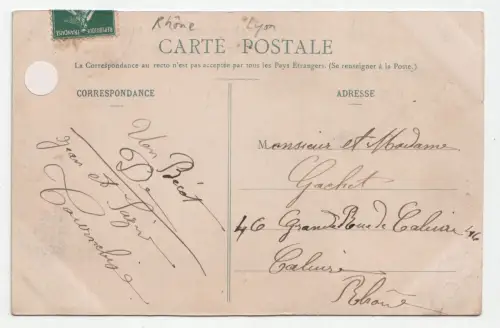 Rhône Lyon
CARTE POSTALE
La Correspondance au recto n'est pas acceptée par tous les Pays Étrangers. (Se renseigner à la Poste.)
CORRESPONDANCE
ADRESSE
Bécot
De
Jean et
Monsieur et Madame
Gachet
46 Grande Rue de Caluire 46
Caluire
Rhône